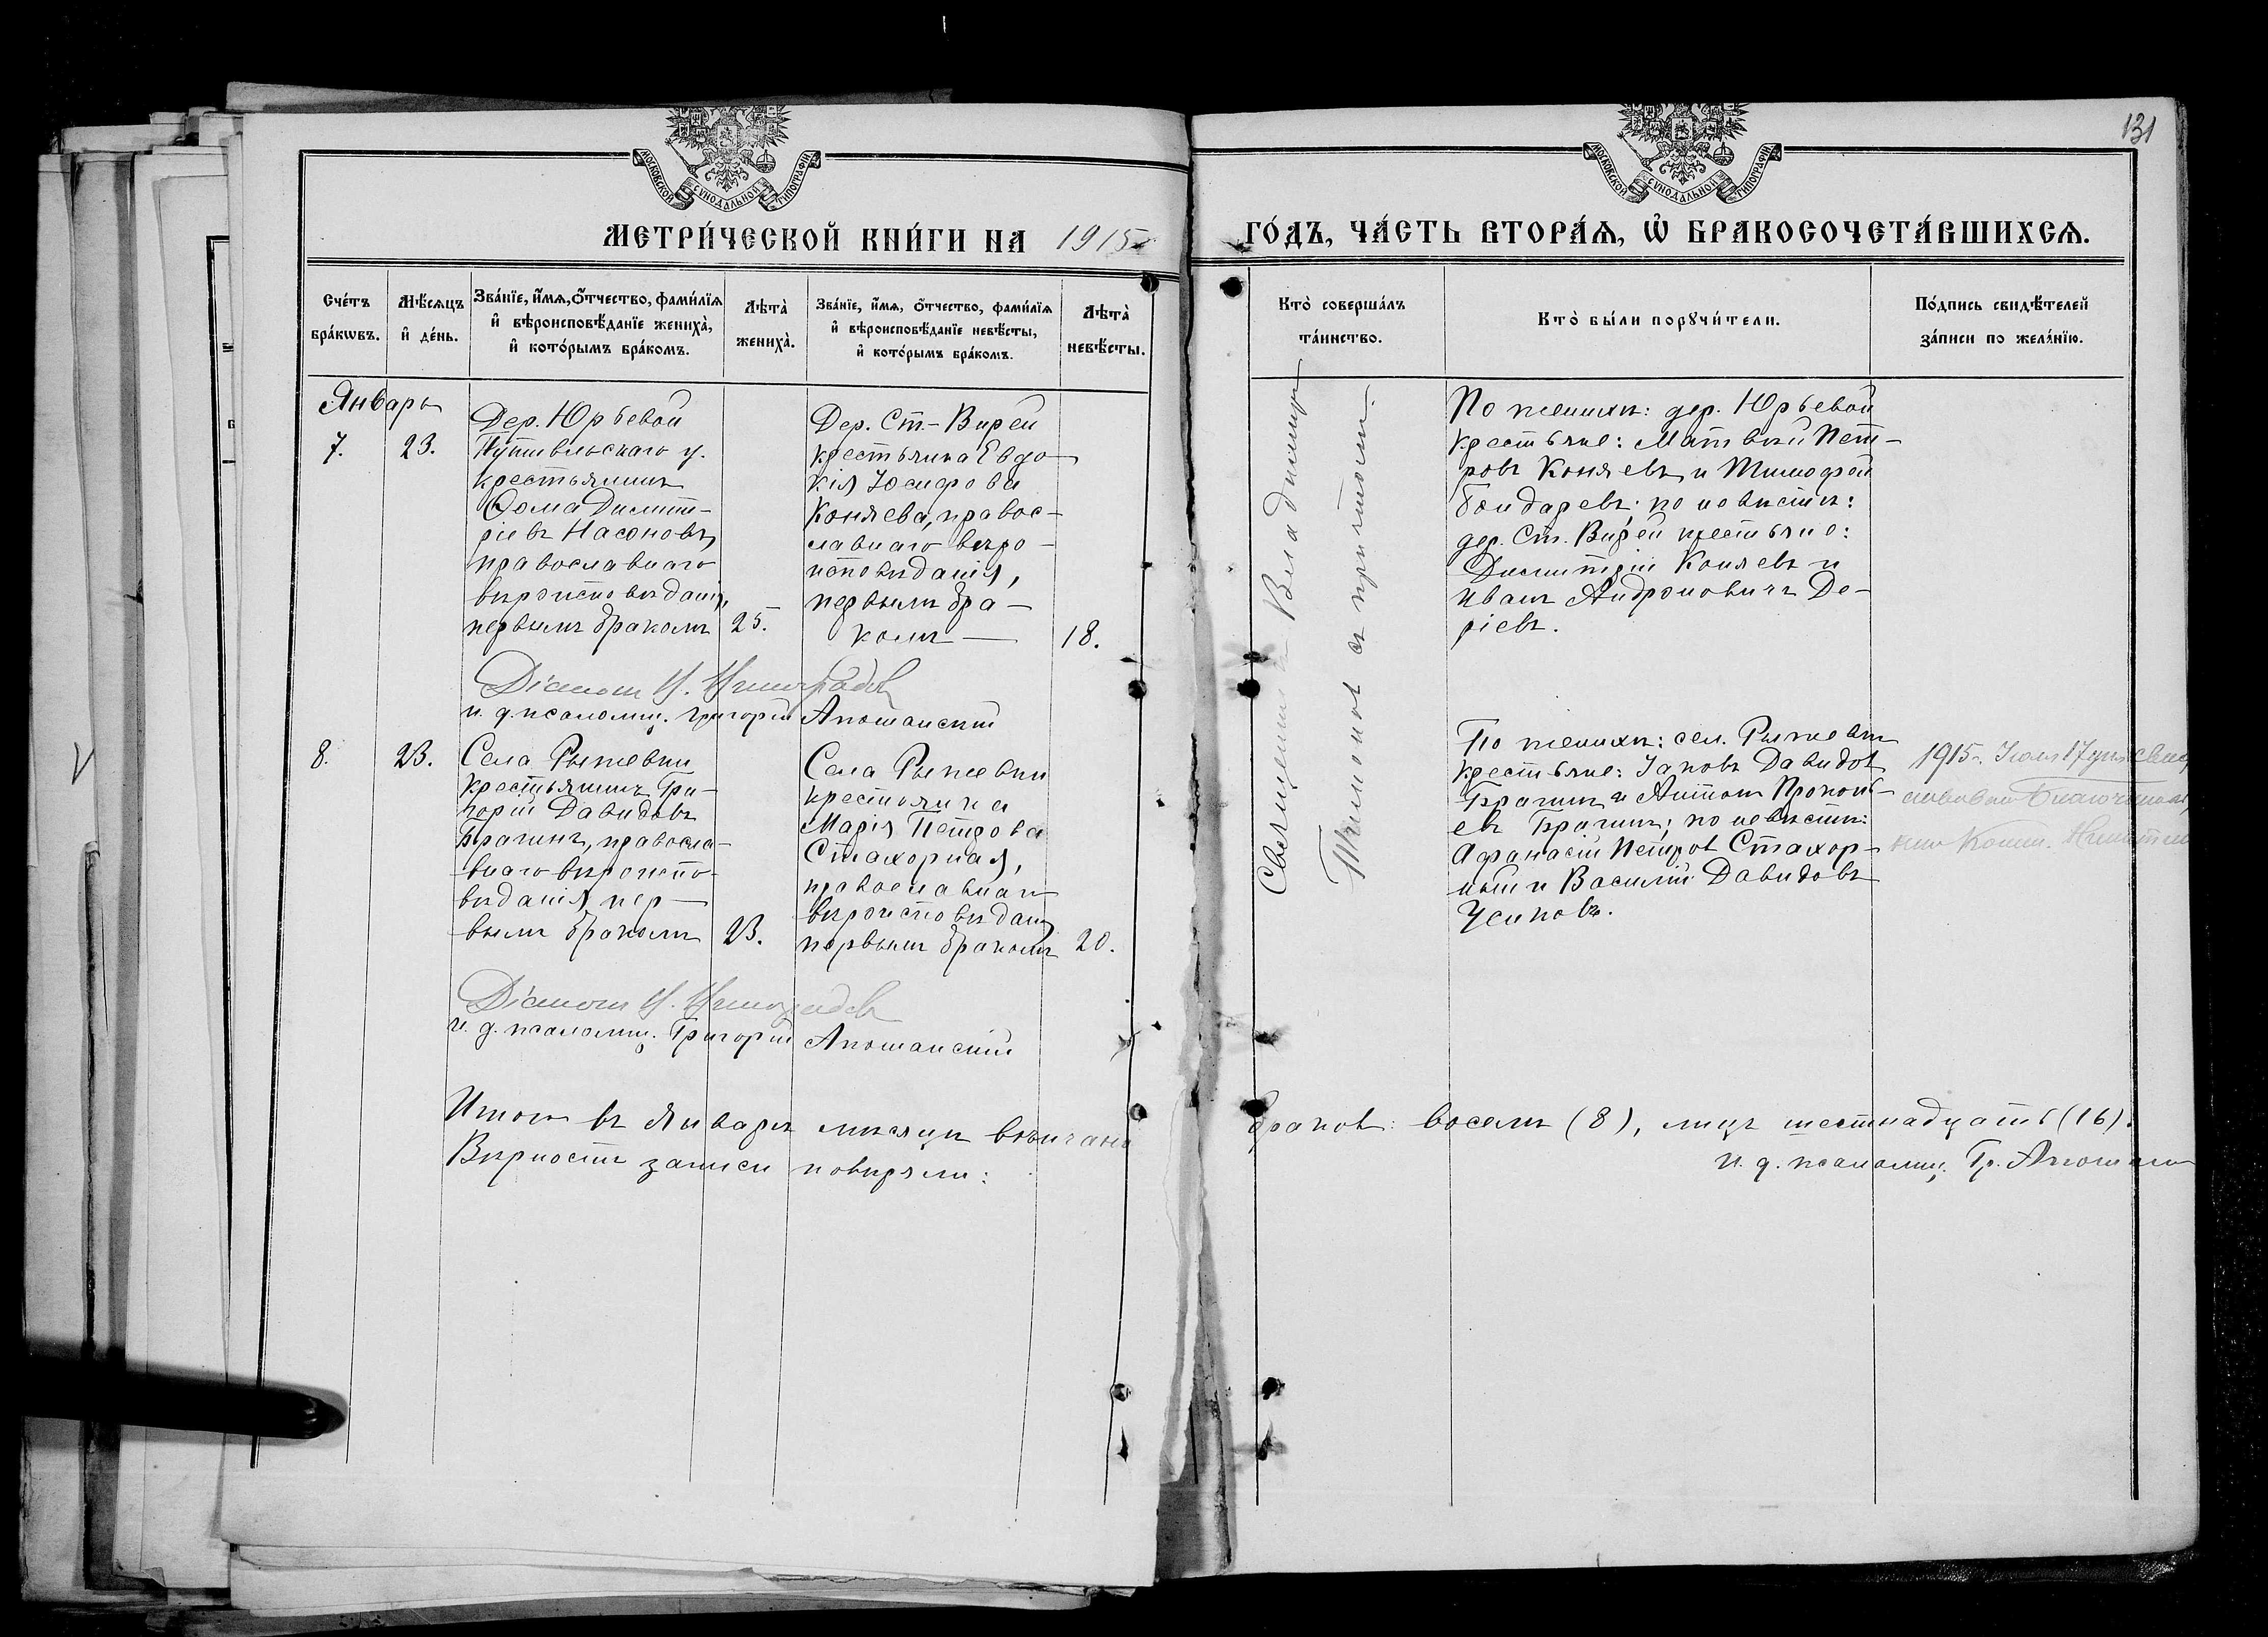 131
МОСКОВСКОЙ СѴНОДАЛЬНОЙ ТИПОГРАФІИ
МОСКОВСКОЙ СѴНОДАЛЬНОЙ ТИПОГРАФІИ
МЕТРИ́ЧЕСКОЙ КНИ́ГИ НА 1915
ГО́ДЪ, ЧА́СТЬ ВТОРА́Ѧ, Ѡ҆ БРАКОСОЧЕТА́ВШИХСѦ.
Сче́тъ
бра́кѡвъ.
Мѣ́сѧцъ
и҆ де́нь.
Зва́нїе, и҆́мѧ, ѻ҆́тчество, фами́лїѧ
и҆ вѣроисповѣ́данїе жениха̀,
и҆ кото́рымъ бра́комъ.
Лѣта̀
жениха̀.
Зва́нїе, и҆́мѧ, ѻ҆́тчество, фами́лїѧ
и҆ вѣроисповѣ́данїе невѣ́сты,
и҆ кото́рымъ бра́комъ.
Лѣта̀
невѣ́сты.
Кто̀ соверша́лъ
та́инство.
Кто̀ бы́ли порꙋчи́тели.
По́дпись свидѣ́телей
за́писи по жела́нїю.
Январь
7.
23.
Дер. Юрьевой
Путивльскаго у.
крестьянинъ
Ѳома Димит-
ріевъ Насоновъ,
православнаго
вѣроисповѣданія,
первымъ бракомъ
25.
Дер. Ст.-Вирей
крестьянка Евдо-
кія Іосифова
Коняева, правос-
лавнаго вѣро-
исповѣданія,
первымъ бра-
комъ
18.
Священникъ Владимиръ
Тимоновъ съ причтомъ.
По женихѣ: дер. Юрьевой
крестьяне: Матвѣй Пет-
ровъ Коняевъ и Тимофей
Бондаревъ; по невѣстѣ:
дер. Ст. Вирей крестьяне:
Димитрій Коняевъ и
Иванъ Андроновичъ Де-
ріевъ.
Діаконъ И.
и. д. псаломщ. Григорій
8.
23.
Села Рыжевки
крестьянинъ Гри-
горій Давидовъ
Брагинъ, правосла-
внаго вѣроиспо-
вѣданія, пер-
вымъ бракомъ
23.
Села Рыжевки
крестьянка
Марія Петрова
Стахорная,
православнаго
вѣроисповѣданія
первымъ бракомъ
20.
По женихѣ: сел. Рыжевки
крестьяне: Іаковъ Давидов
Брагинъ и Антонъ Прокопь-
евъ Брагинъ; по невѣстѣ:
Афанасій Петров Стахор-
ный и Василій Давидовъ
Усиковъ.
1915 г. 17
Діаконъ И.
и. д. псаломщ. Григорій
Итого въ Январѣ мѣсяцѣ вѣнчано
браков: восемь (8), лицъ шестнадцать (16).
Вѣрность записи повѣряли:
и. д. псаломщ. Гр.